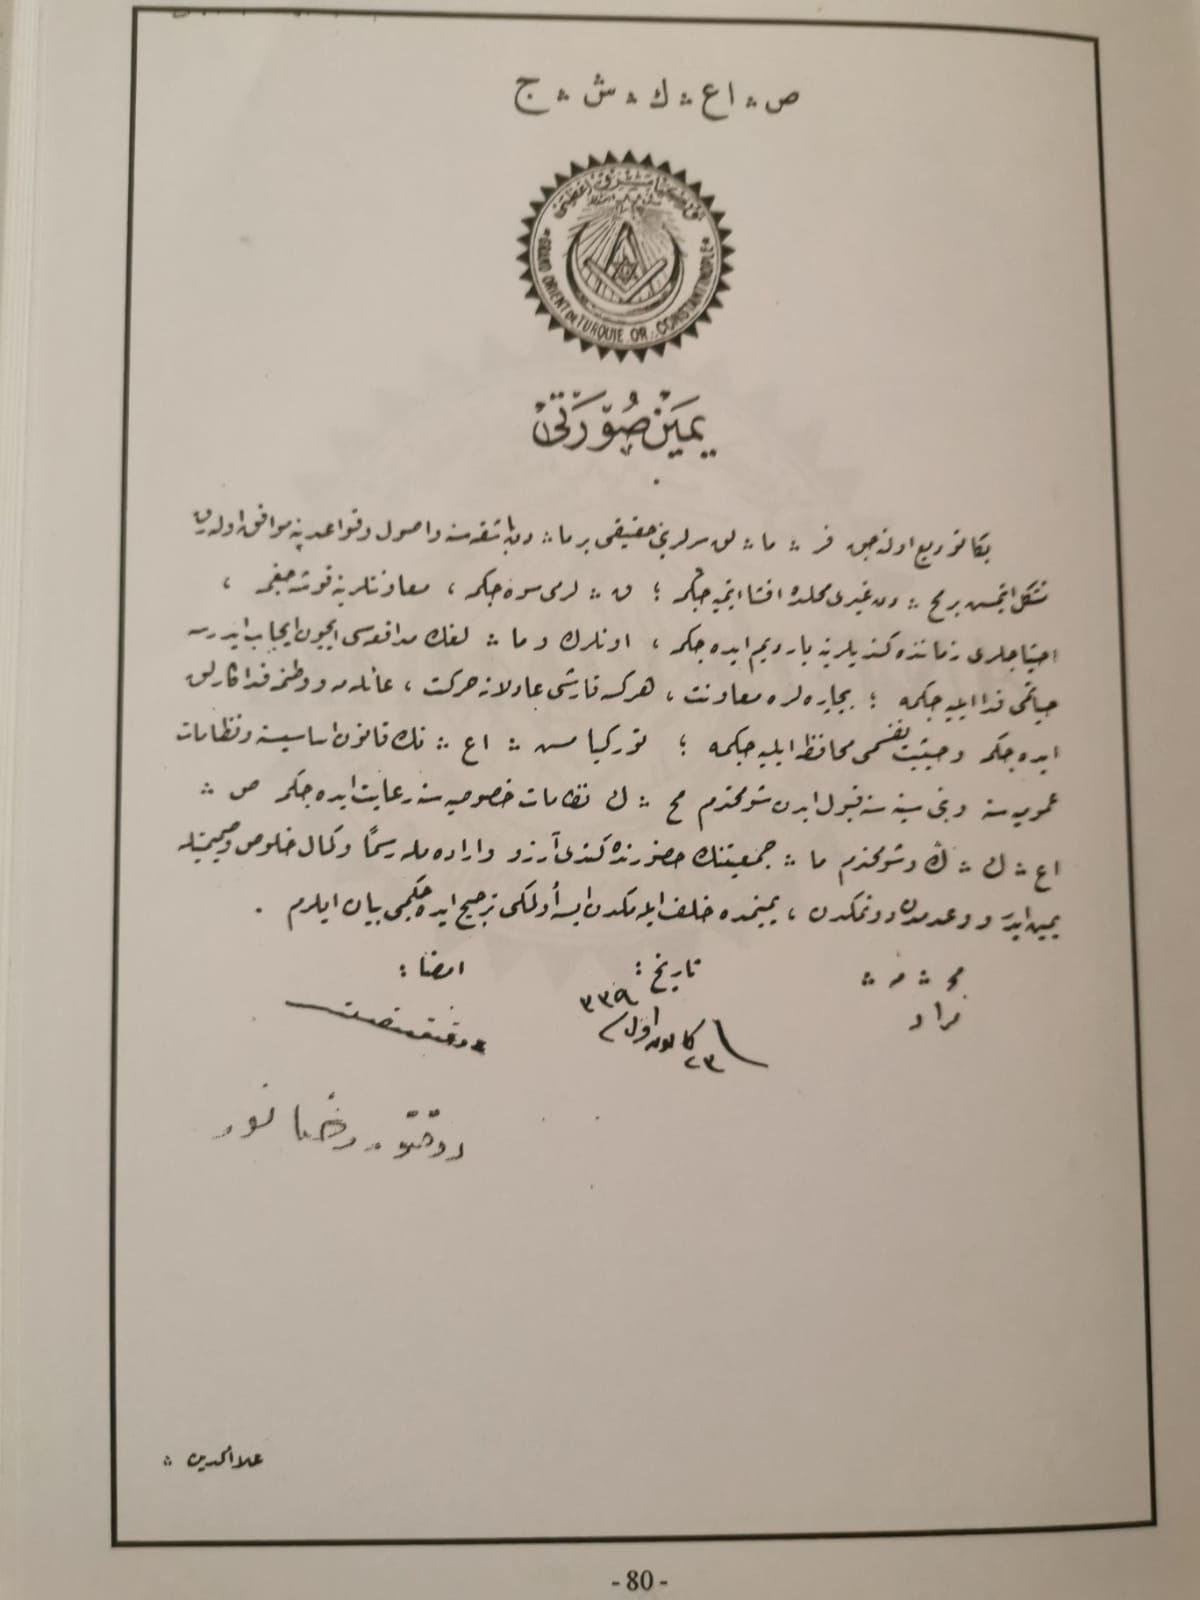 ص ∴ اع ∴ ك ∴ ش ∴ ج
GRAND ORIENT DE TURQUIE OR∴ CONSTANTINOPLE
يمين صورتى
بكا توديع اولنه جق فر ∴ ما ∴ لق سرلرينى حقيقى بر ما ∴ دن باشقه سنه و اصول و قواعدينه موافق اوله رق
تشكل ايتمش بر مح ∴ دن غيرى محلده افشا ايتميه جكم ؛ ق ∴ لرمى سوه جكم ، معاونتلرينه قوشه جغم ،
احتياجلرى زماننده كنديلرينه يارديم ايده جكم ، اونلرك و ما ∴ لغك مدافعه سى ايچون ايجاب ايدرسه
حياتمى فدا ايليه جكم ؛ بيچاره لره معاونت ، هركسه قارشى عادلانه حركت ، عائله مه و وطنمه فداكارلق
ايده جكم و حيثيت نفسمى محافظه ايليه جكم ؛ توركيا مش ∴ اع ∴ نك قانون اساسيسنه و نظامات
عموميه سنه و بنى سينه سنه قبول ايدن شو محترم مح ∴ ك نظامات خصوصيه سنه رعايت ايده جكم ص ∴
اع ∴ ك ∴ ك و شو محترم ما ∴ جمعيتنك حضورنده كندى آرزو و اراده مله رسماً و كمال خلوص و صميميتله
يمين ايدر و وعدمدن دونمكدن ، يمينمده خلف ايله مكدن ايسه أولمكى ترجيح ايده جكمى بيان ايلرم .
مح ∴ م ∴ تاريخ : امضا :
مراد ٣٣٩
٢٣ كانون اول
دوقتور رضا نور
علاالدين ∴
- 80 -